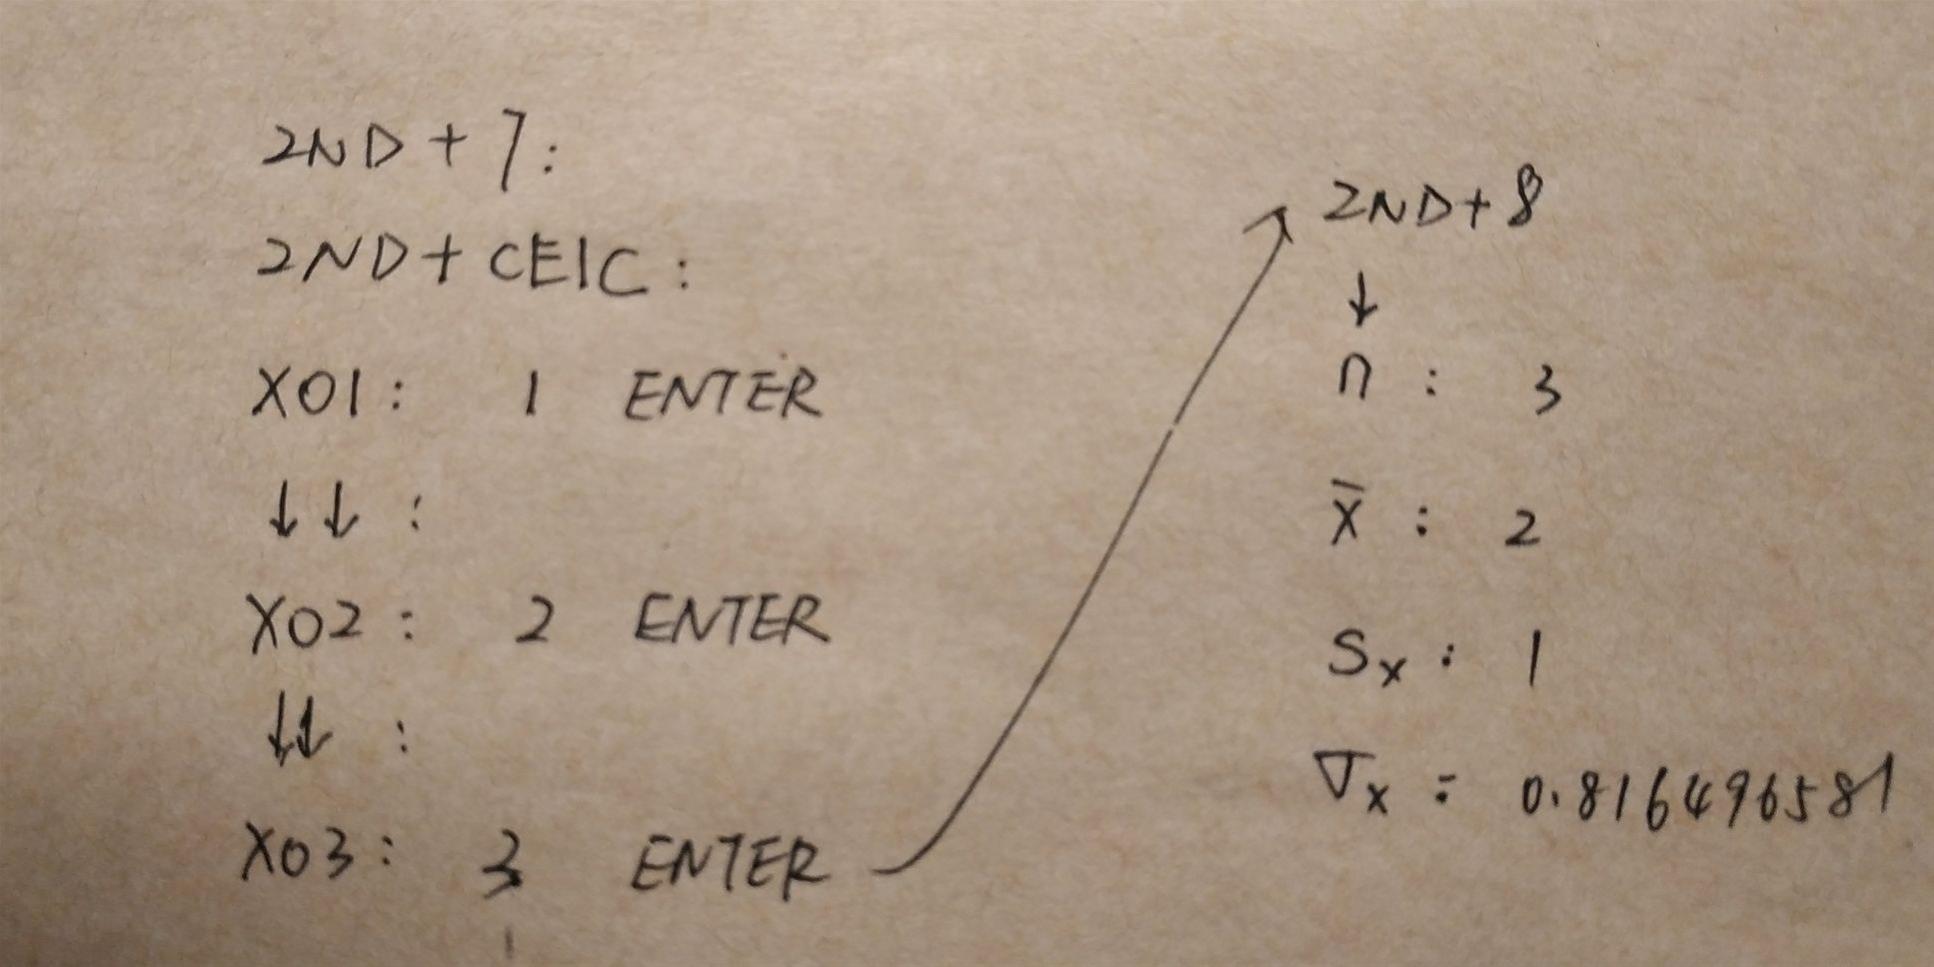 2ND + 7:
2ND + CE|C:
X01: 1 ENTER
↓↓ :
X02: 2 ENTER
↓↓ :
X03: 3 ENTER
2ND+8
↓
n : 3
x̄ : 2
Sx : 1
σx : 0.816496581